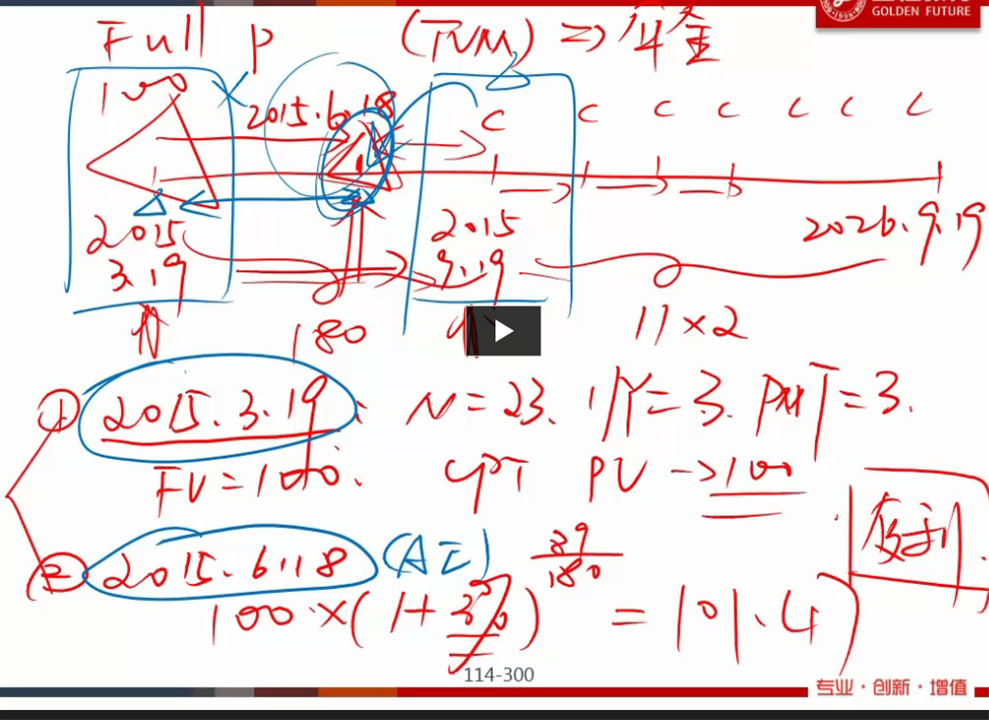 GOLDEN FUTURE
Full P (TVM) ⇒ 年金
100 2015.6.18 C C C C C C C
2015 3.19 2015 9.19 2026.9.19
180 11×2
① 2015.3.19: N=23. I/Y=3. PMT=3.
FV=100. CPT PV → 100
② 2015.6.18 (AI) 89/180 复利
100×(1+3%) = 101.47
114-300
专业·创新·增值